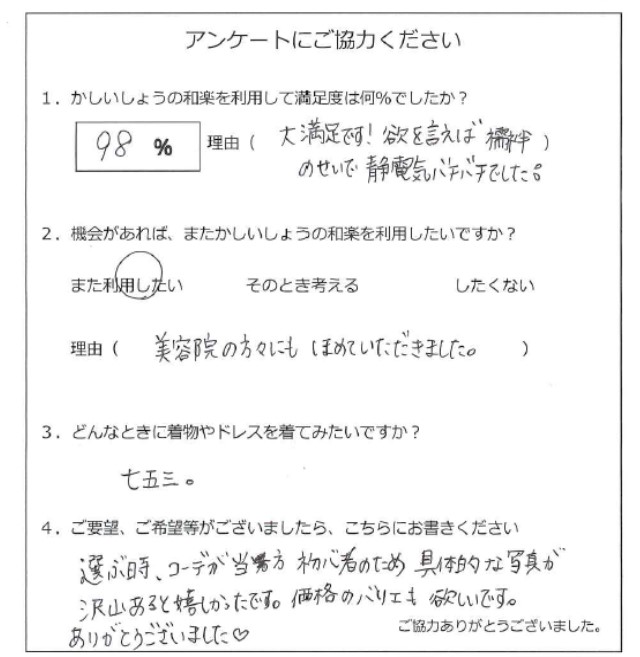 アンケートにご協力ください
1．かしいしょうの和楽を利用して満足度は何％でしたか？
98 % 理由（ 大満足です！欲を言えば 襦袢 ）
のせいで 静電気バチバチでした。
2．機会があれば、またかしいしょうの和楽を利用したいですか？
また利用したい そのとき考える したくない
理由（ 美容院の方々にも ほめていただきました。 ）
3．どんなときに着物やドレスを着てみたいですか？
七五三。
4．ご要望、ご希望等がございましたら、こちらにお書きください
選ぶ時、コーデが 当 方 初心者のため 具体的な写真が
沢山あると嬉しかったです。価格のバリエも 欲しいです。
ありがとうございました♡
ご協力ありがとうございました。